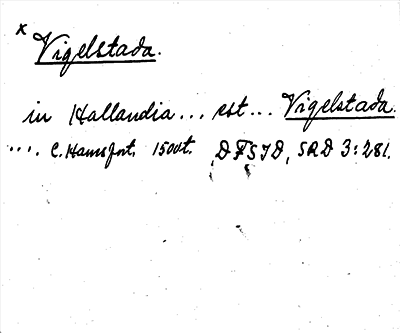 x
Vigelstada.
in Hallandia... est... Vigelstada.
.... C. Hamsfort. 1500t. DFSID, SRD 3:281.